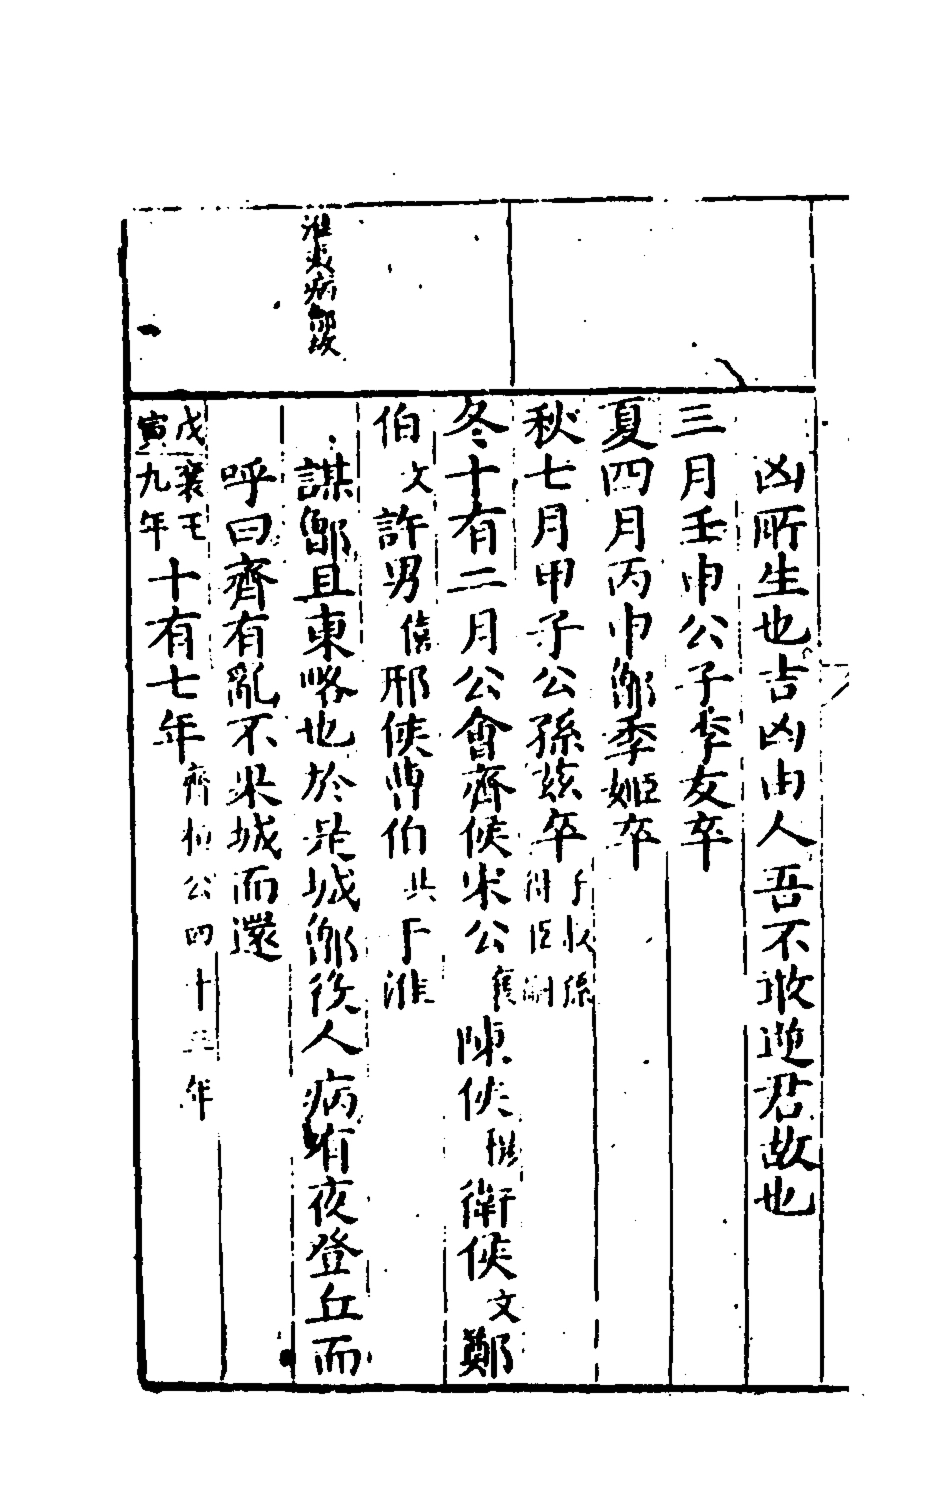 凶所生也吉凶由人吾不敢逆君故也
三月壬申公子季友卒
夏四月丙申鄫季姬卒
秋七月甲子公孫茲卒子叔孫得臣嗣
冬十有二月公會齊侯宋公陳侯衛侯文鄭
伯文許男僖邢侯曹伯共于淮
淮夷病鄫故
謀鄫且東略也於是城鄫役人病有夜登丘而
呼曰齊有亂不果城而還
戊寅襄王九年十有七年齊桓公四十三年